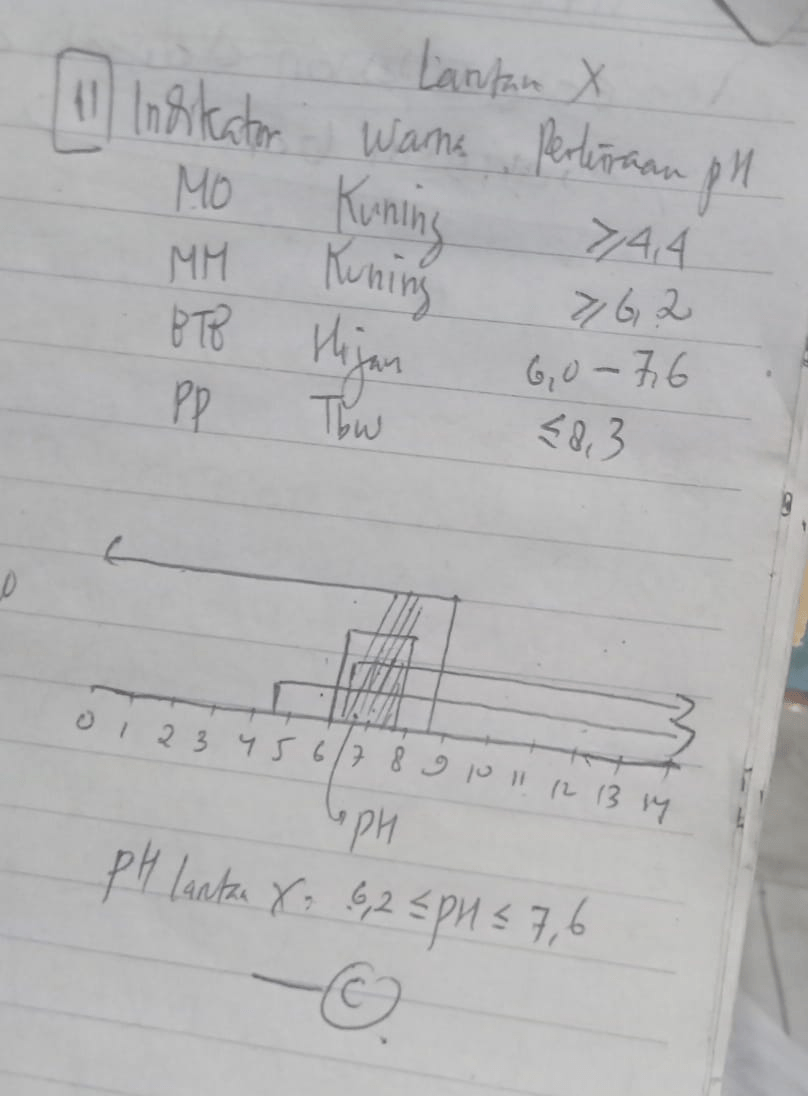 Larutan X
11 Indikator Warna Perkiraan pH
MO Kuning ≥4,4
MM Kuning ≥6,2
BTB Hijau 6,0 – 7,6
PP Tbw ≤8,3
0 1 2 3 4 5 6 7 8 9 10 11 12 13 14
pH
pH larutan X = 6,2 ≤ pH ≤ 7,6
C